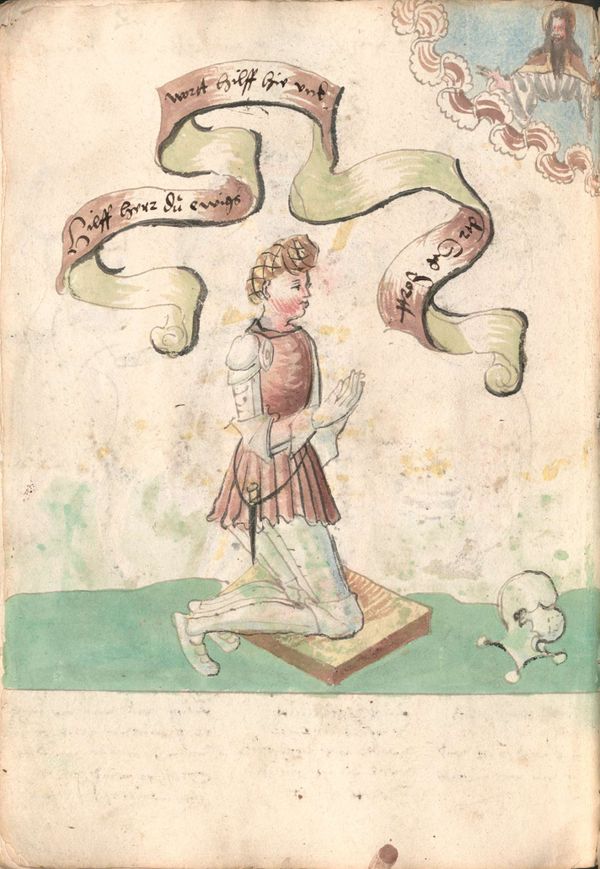 Hilff herr du ewigs
wortt hilff hie vnd
dortt